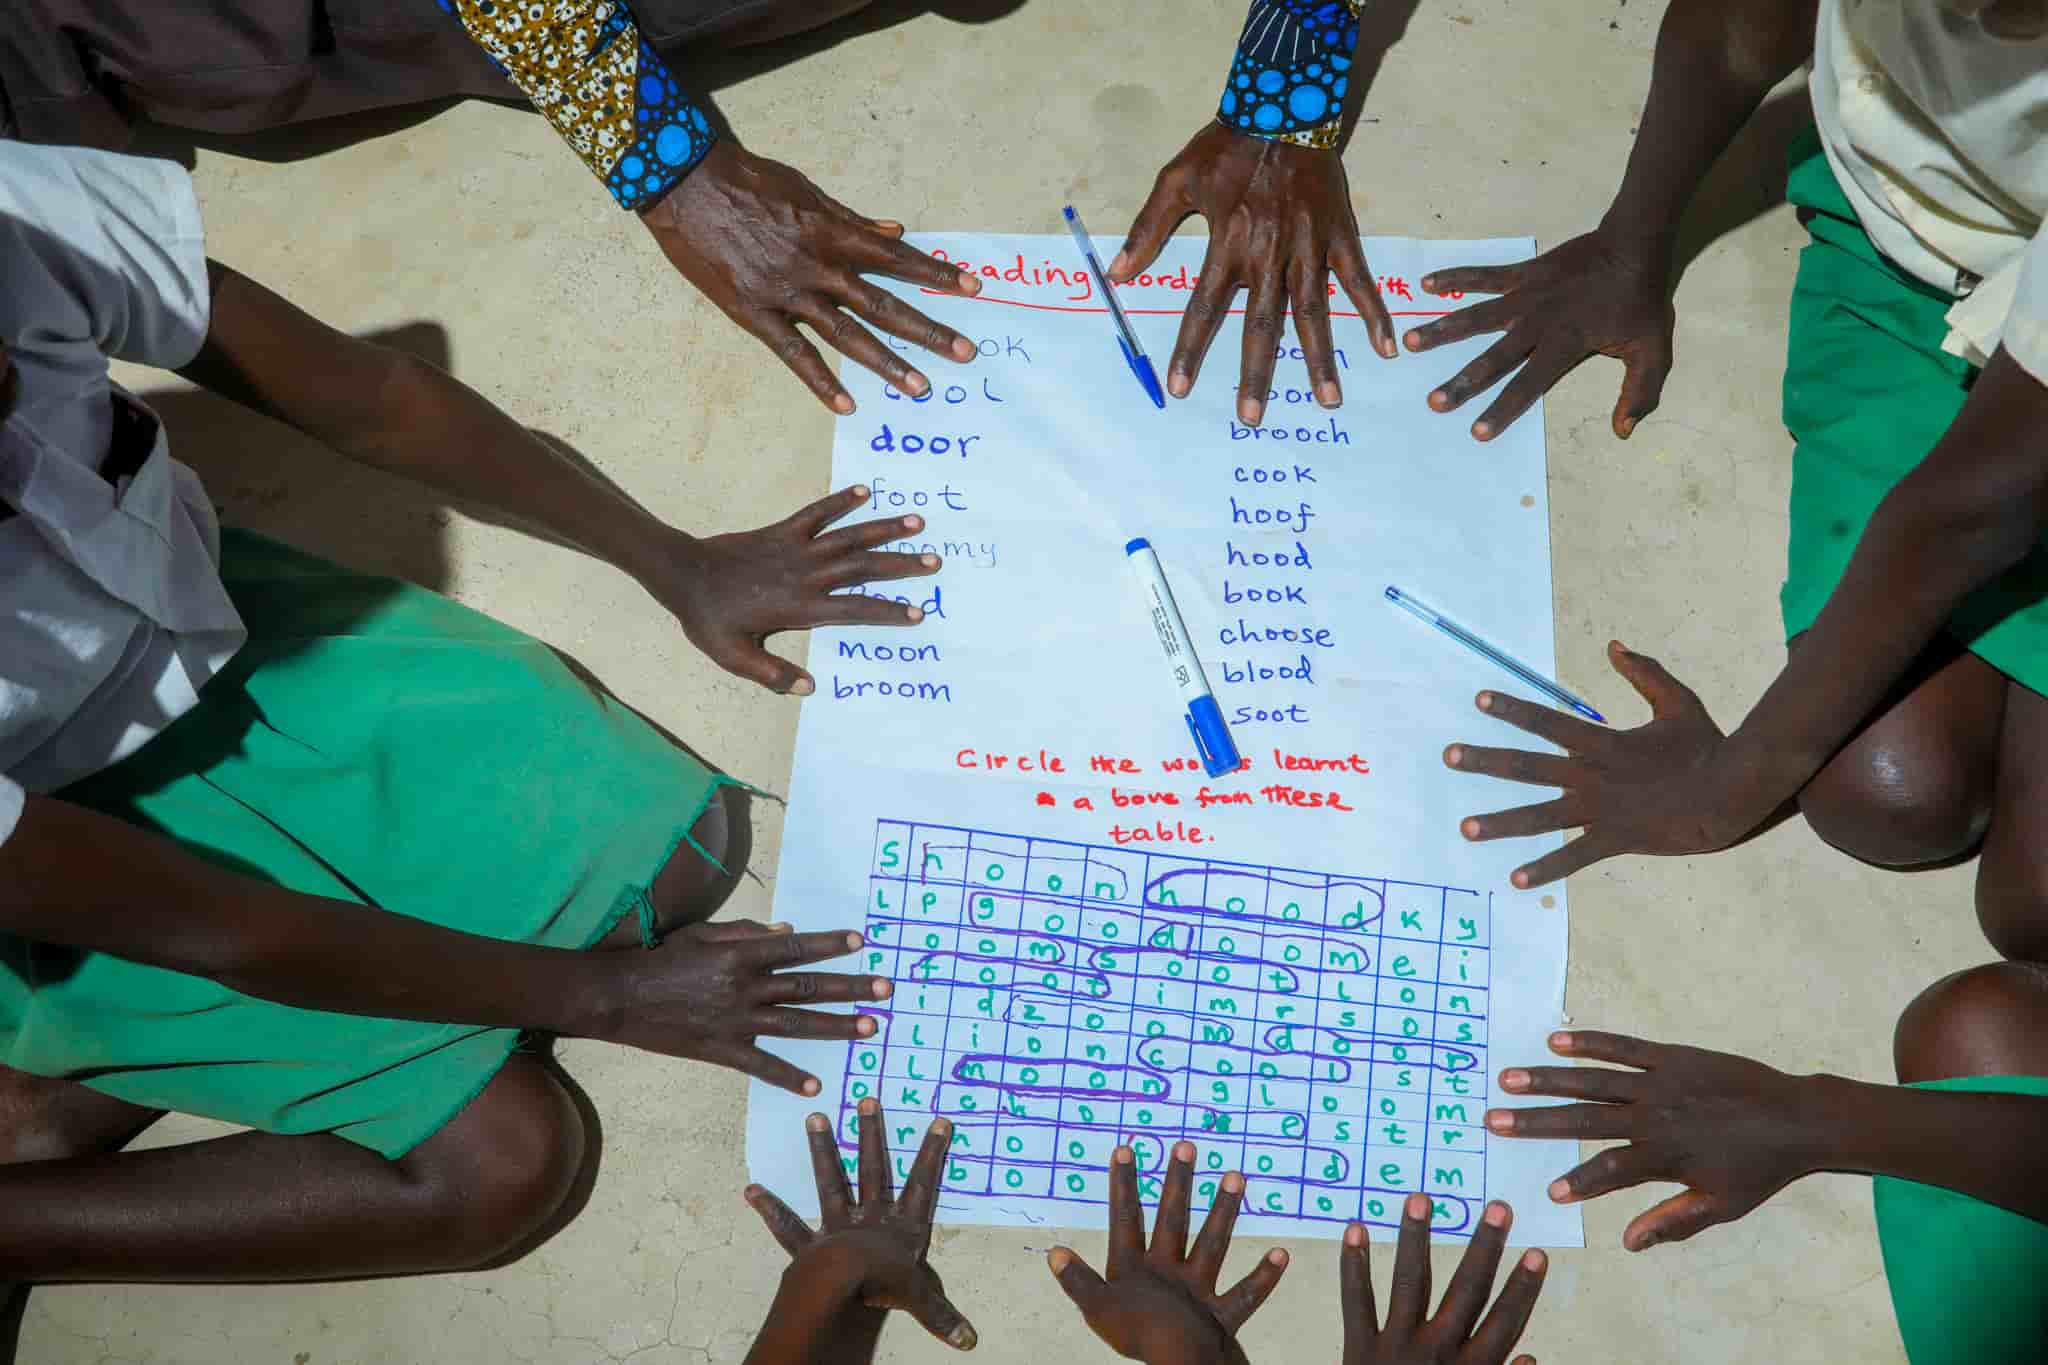 Reading words with oo
cool
door
foot
moon
broom
brooch
cook
hoof
hood
book
choose
blood
soot
Circle the words learnt
a bove from these
table.
S n o o n h o o d k y
L p g o o d o o m e i
r o o m s o o t l o n
p f o o t i m r s o s
i d z o o m d o o r
L i o n c o o l s t
o L m o o n g l o o m
o k c h o o s e s t r
t r h o o f o o d e m
l b o o k g c o o k